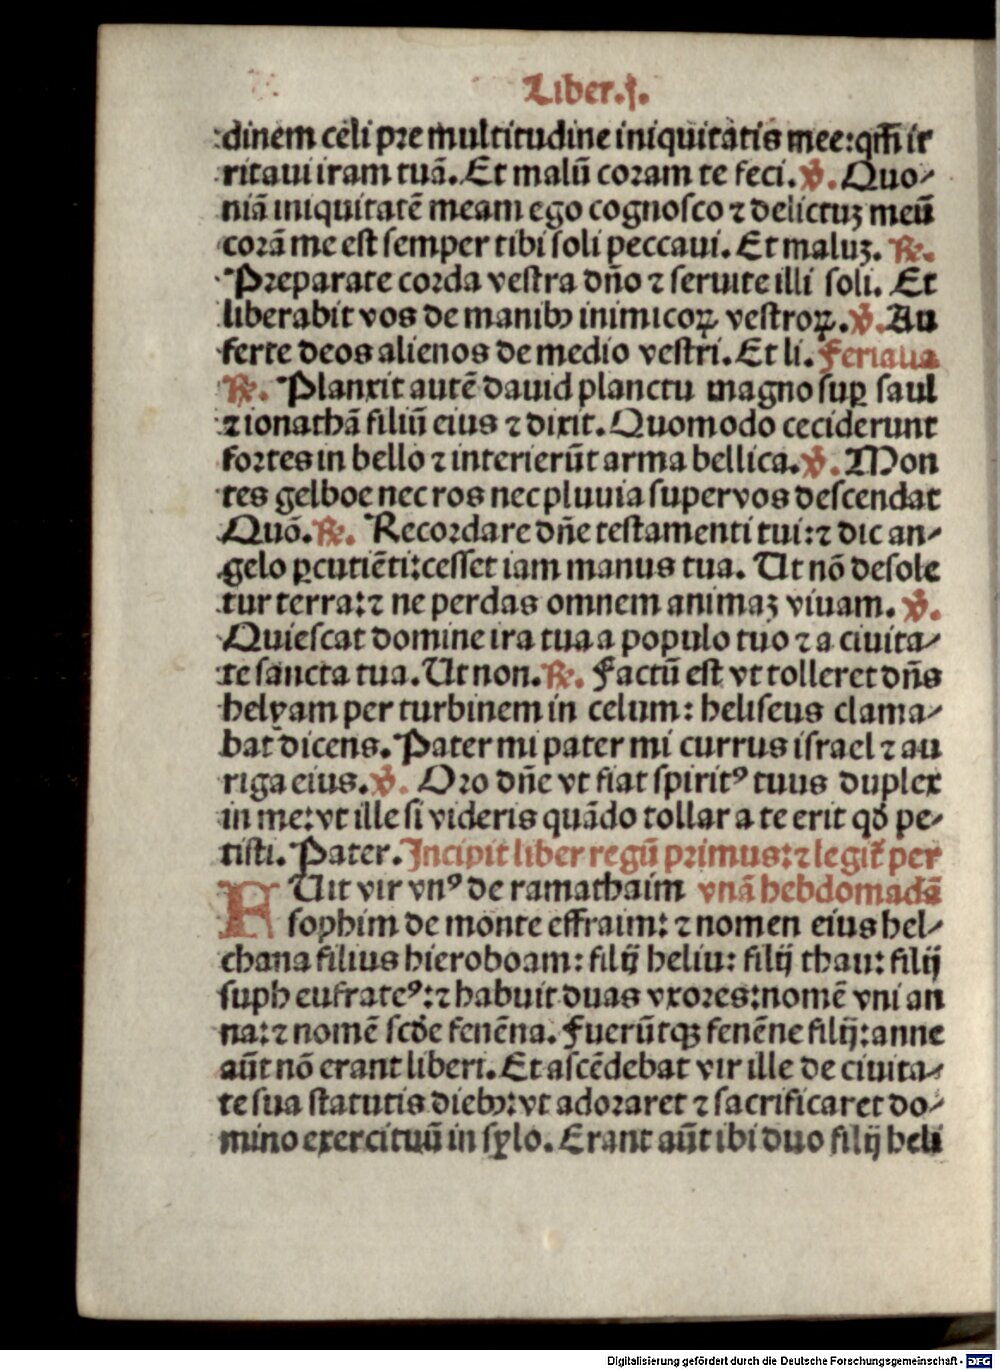 Liber.j.
dinem celi pre multitudine iniquitatis mee:qm̄ ir
ritaui iram tuā. Et malū coram te feci. ℣. Quo-
niā iniquitatē meam ego cognosco ⁊ delictuꝫ meū
corā me est semper tibi soli peccaui. Et maluꝫ. ℟.
Preparate corda vestra dn̄o ⁊ seruite illi soli. Et
liberabit vos de manibꝰ inimicoꝝ vestroꝝ. ℣. Au
ferte deos alienos de medio vestri. Et li. Feria
℟. Planxit autē dauid planctu magno suꝑ saul
⁊ ionathā filiū eius ⁊ dixit. Quomodo ceciderunt
fortes in bello ⁊ interierūt arma bellica. ℣. Mon
tes gelboe nec ros nec pluuia super vos descendat
Quō. ℟. Recordare dn̄e testamenti tui:⁊ dic an-
gelo ꝑcutiēti:cesset iam manus tua. Ut nō desole
tur terra:⁊ ne perdas omnem animaꝫ viuam. ℣.
Quiescat domine ira tua a populo tuo ⁊ a ciuita-
te sancta tua. Ut non. ℟. Factū est vt tolleret dn̄s
helyam per turbinem in celum: heliseus clama-
bat dicens. Pater mi pater mi currus israel ⁊ au
riga eius. ℣. Oro dn̄e vt fiat spiritꝰ tuus duplex
in me:vt ille si videris quādo tollar a te erit qḋ pe-
tisti. Pater. Incipit liber regū primus:⁊ legit̄ per
FUit vir vnꝰ de ramathaim vnā hebdomadā
sophim de monte effraim: ⁊ nomen eius hel-
chana filius hieroboam: filij heliu: filij thau: filij
suph eufrateꝰ:⁊ habuit duas vxores:nomē vni an
na:⁊ nomē scḋe fenēna. Fuerūtqꝫ fenēne filij:anne
aūt nō erant liberi. Et ascēdebat vir ille de ciuita-
te sua statutis diebꝰ:vt adoraret ⁊ sacrificaret do-
mino exercituū in sylo. Erant aūt ibi duo filij heli
Digitalisierung gefördert durch die Deutsche Forschungsgemeinschaft - DFG